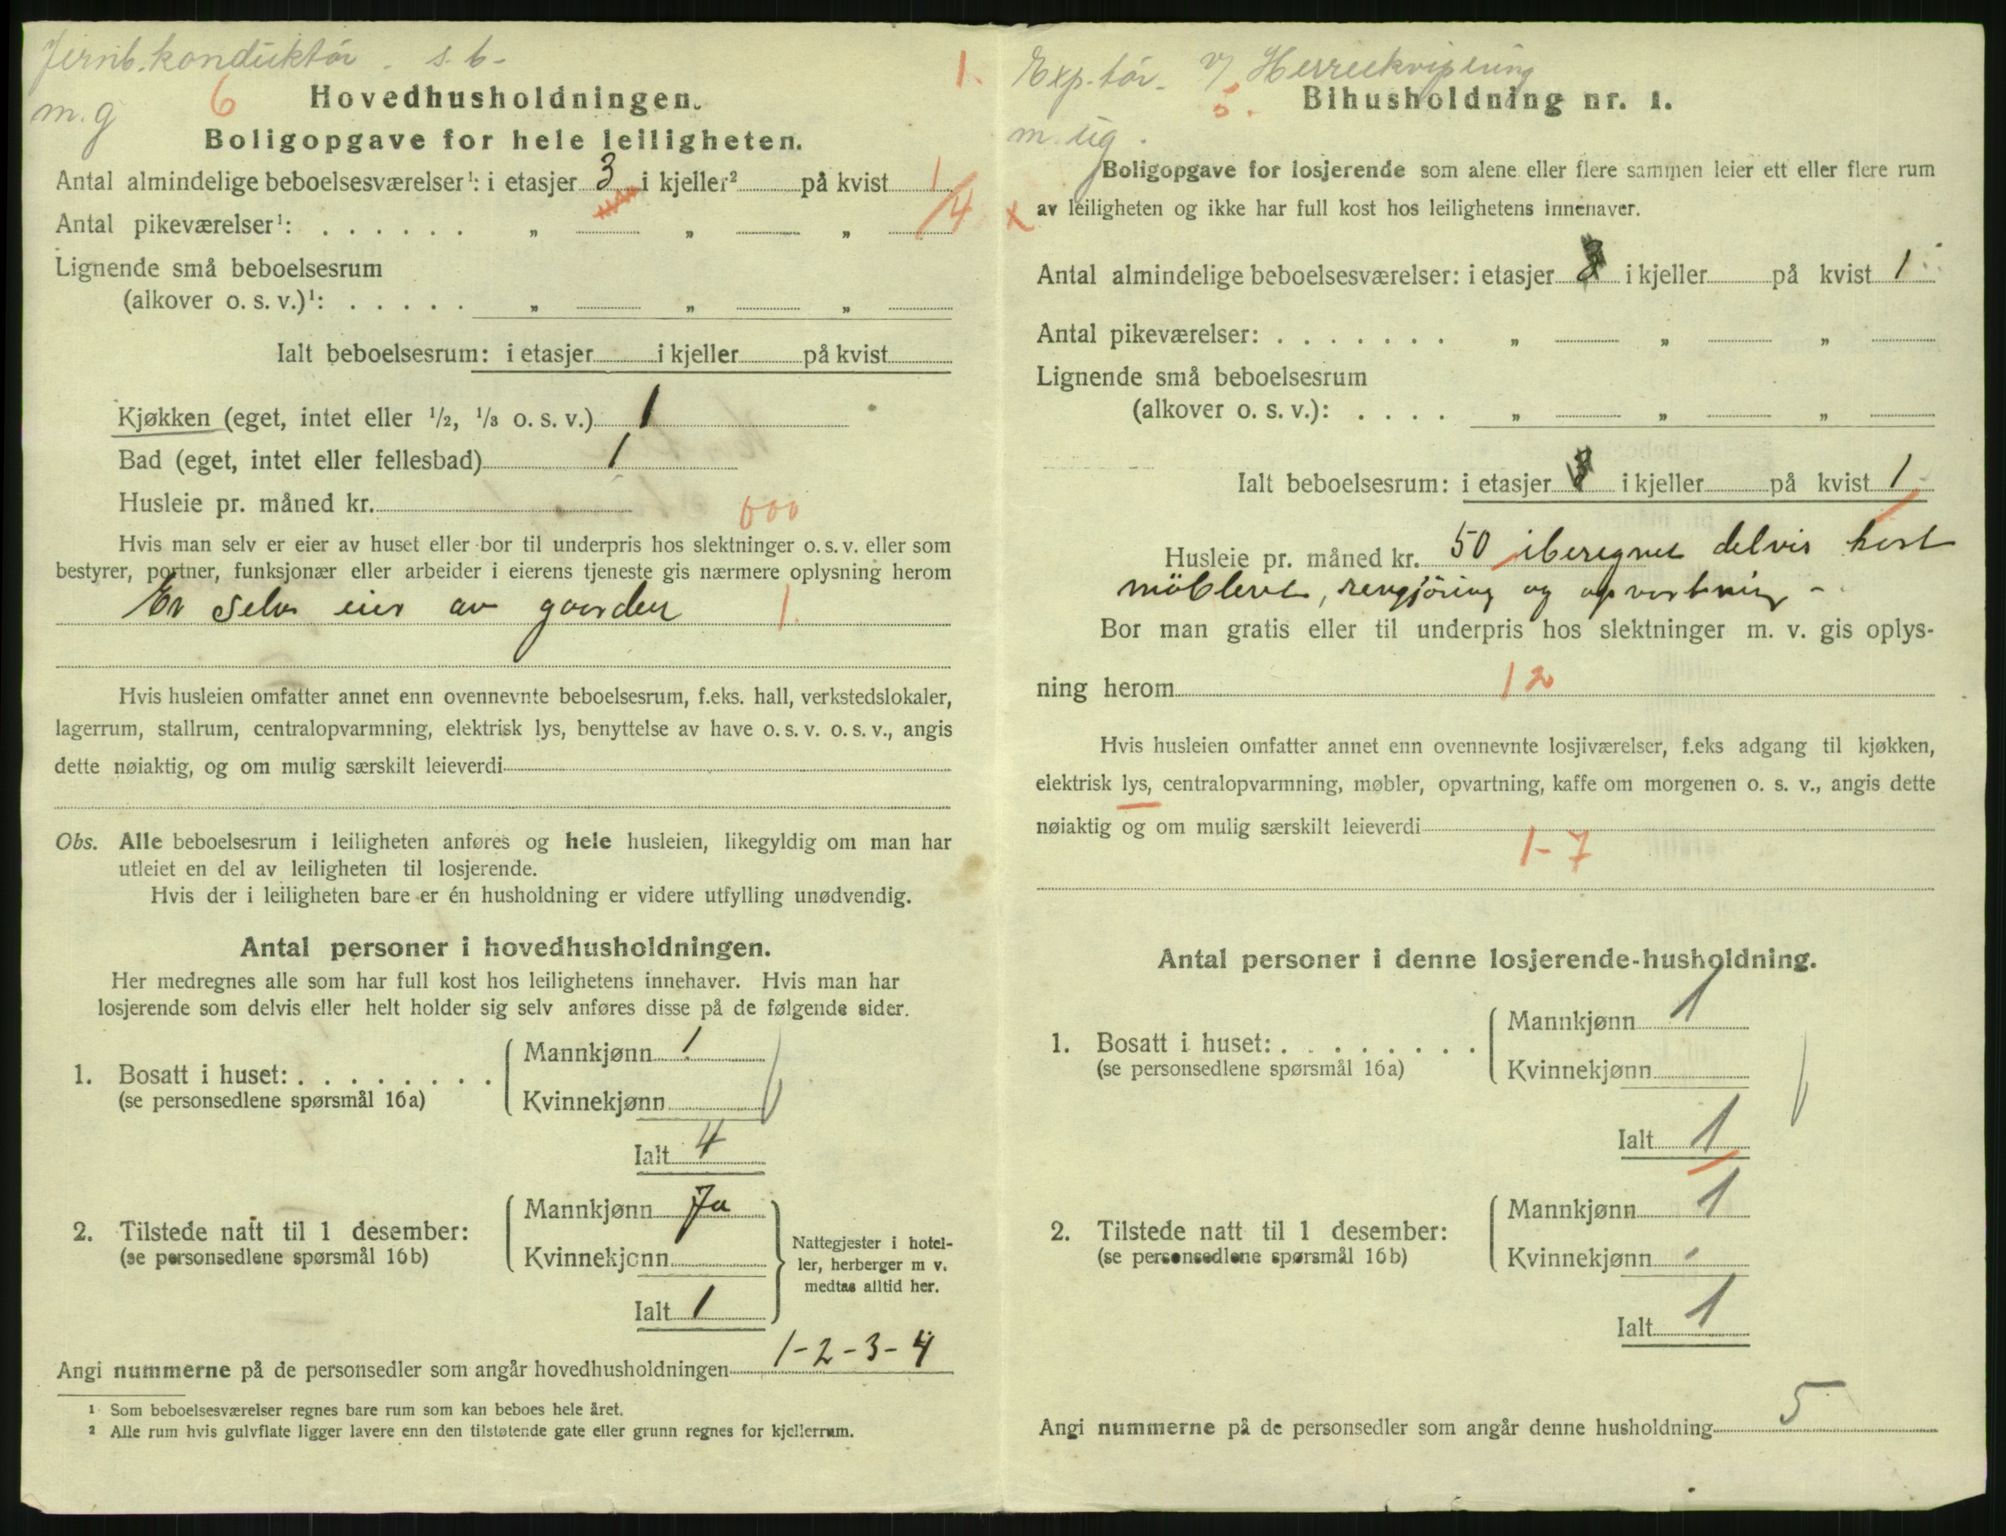 Jernb.konduktör. s.b-
m.g
6
1.
Hovedhusholdningen.
Boligopgave for hele leiligheten.
Antal almindelige beboelsesværelser¹: i etasjer 3 i kjeller² på kvist 1
Antal pikeværelser¹: . . . . . . „ „ „ /4
Lignende små beboelsesrum
(alkover o. s. v.)¹: . . . . . „ „ „
Ialt beboelsesrum: i etasjer i kjeller på kvist
Kjøkken (eget, intet eller 1/2, 1/3 o. s. v.) 1
Bad (eget, intet eller fellesbad) 1
Husleie pr. måned kr.
600
Hvis man selv er eier av huset eller bor til underpris hos slektninger o. s. v. eller som
bestyrer, portner, funksjonær eller arbeider i eierens tjeneste gis nærmere oplysning herom
Er selv eier av gaarden 1.
Hvis husleien omfatter annet enn ovennevnte beboelsesrum, f.eks. hall, verkstedslokaler,
lagerrum, stallrum, centralopvarmning, elektrisk lys, benyttelse av have o. s. v. o. s. v., angis
dette nøiaktig, og om mulig særskilt leieverdi
Obs. Alle beboelsesrum i leiligheten anføres og hele husleien, likegyldig om man har
utleiet en del av leiligheten til losjerende.
Hvis der i leiligheten bare er én husholdning er videre utfylling unødvendig.
Antal personer i hovedhusholdningen.
Her medregnes alle som har full kost hos leilighetens innehaver. Hvis man har
losjerende som delvis eller helt holder sig selv anføres disse på de følgende sider.
1. Bosatt i huset: . . . . . . . .
(se personsedlene spørsmål 16a)
Mannkjønn 1
Kvinnekjønn
Ialt 4
2. Tilstede natt til 1 desember:
(se personsedlene spørsmål 16b)
Mannkjønn Ja
Kvinnekjønn
Ialt 1
Nattegjester i hotel-
ler, herberger m v.
medtas alltid her.
Angi nummerne på de personsedler som angår hovedhusholdningen 1-2-3-4
¹ Som beboelsesværelser regnes bare rum som kan beboes hele året.
² Alle rum hvis gulvflate ligger lavere enn den tilstøtende gate eller grunn regnes for kjellerrum.
Exp.tör. v/ Herreekvipering
m. ug.
5.
Bihusholdning nr. 1.
Boligopgave for losjerende som alene eller flere sammen leier ett eller flere rum
x av leiligheten og ikke har full kost hos leilighetens innehaver.
Antal almindelige beboelsesværelser: i etasjer i kjeller på kvist 1
Antal pikeværelser: . . . . . . . „ „ „
Lignende små beboelsesrum
(alkover o. s. v.): . . . . „ „ „
Ialt beboelsesrum: i etasjer i kjeller på kvist 1
Husleie pr. måned kr. 50 iberegnet delvis kost
möbleret, rengjöring og opvartning -
Bor man gratis eller til underpris hos slektninger m. v. gis oplys-
ning herom
12
Hvis husleien omfatter annet enn ovennevnte losjiværelser, f.eks adgang til kjøkken,
elektrisk lys, centralopvarmning, møbler, opvartning, kaffe om morgenen o. s. v., angis dette
nøiaktig og om mulig særskilt leieverdi
1-7
Antal personer i denne losjerende-husholdning.
1. Bosatt i huset: . . . . . . . .
(se personsedlene spørsmål 16a)
Mannkjønn 1
Kvinnekjønn
Ialt 1
2. Tilstede natt til 1 desember:
(se personsedlene spørsmål 16b)
Mannkjønn 1
Kvinnekjønn
Ialt 1
Angi nummerne på de personsedler som angår denne husholdning 5